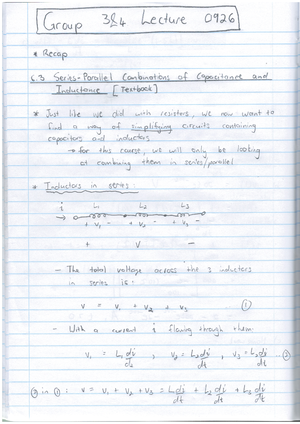 Group 3&4 Lecture 0926
* Recap
6.3 Series-Parallel Combinations of Capacitance and
Inductance [Textbook]
* Just like we did with resistors, we now want to
find a way of simplifying circuits containing
capacitors and inductors
→ for this course, we will only be looking
at combining them in series/parallel
* Inductors in series:
i L₁ L₂ L₃
+ v₁ - + v₂ - + v₃ -
+ v -
- The total voltage across the 3 inductors
in series is:
v = v₁ + v₂ + v₃ ①
- With a current i flowing through them:
v₁ = L₁ di/dt , v₂ = L₂ di/dt , v₃ = L₃ di/dt ②
② in ① : v = v₁ + v₂ + v₃ = L₁ di/dt + L₂ di/dt + L₃ di/dt